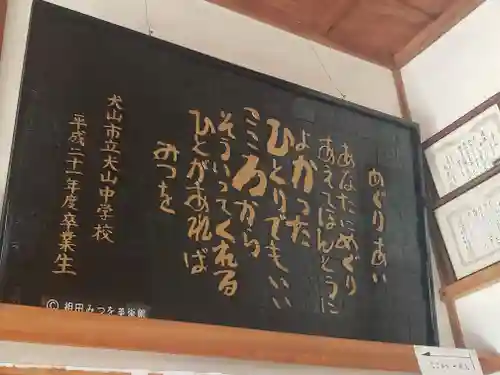 めぐりあい
あなたにめぐり
あえてほんとうに
よかった
ひとりでもいい
こころから
そういってくれる
ひとがあれば
みつを
犬山市立犬山中学校
平成二十一年度卒業生
©相田みつを美術館